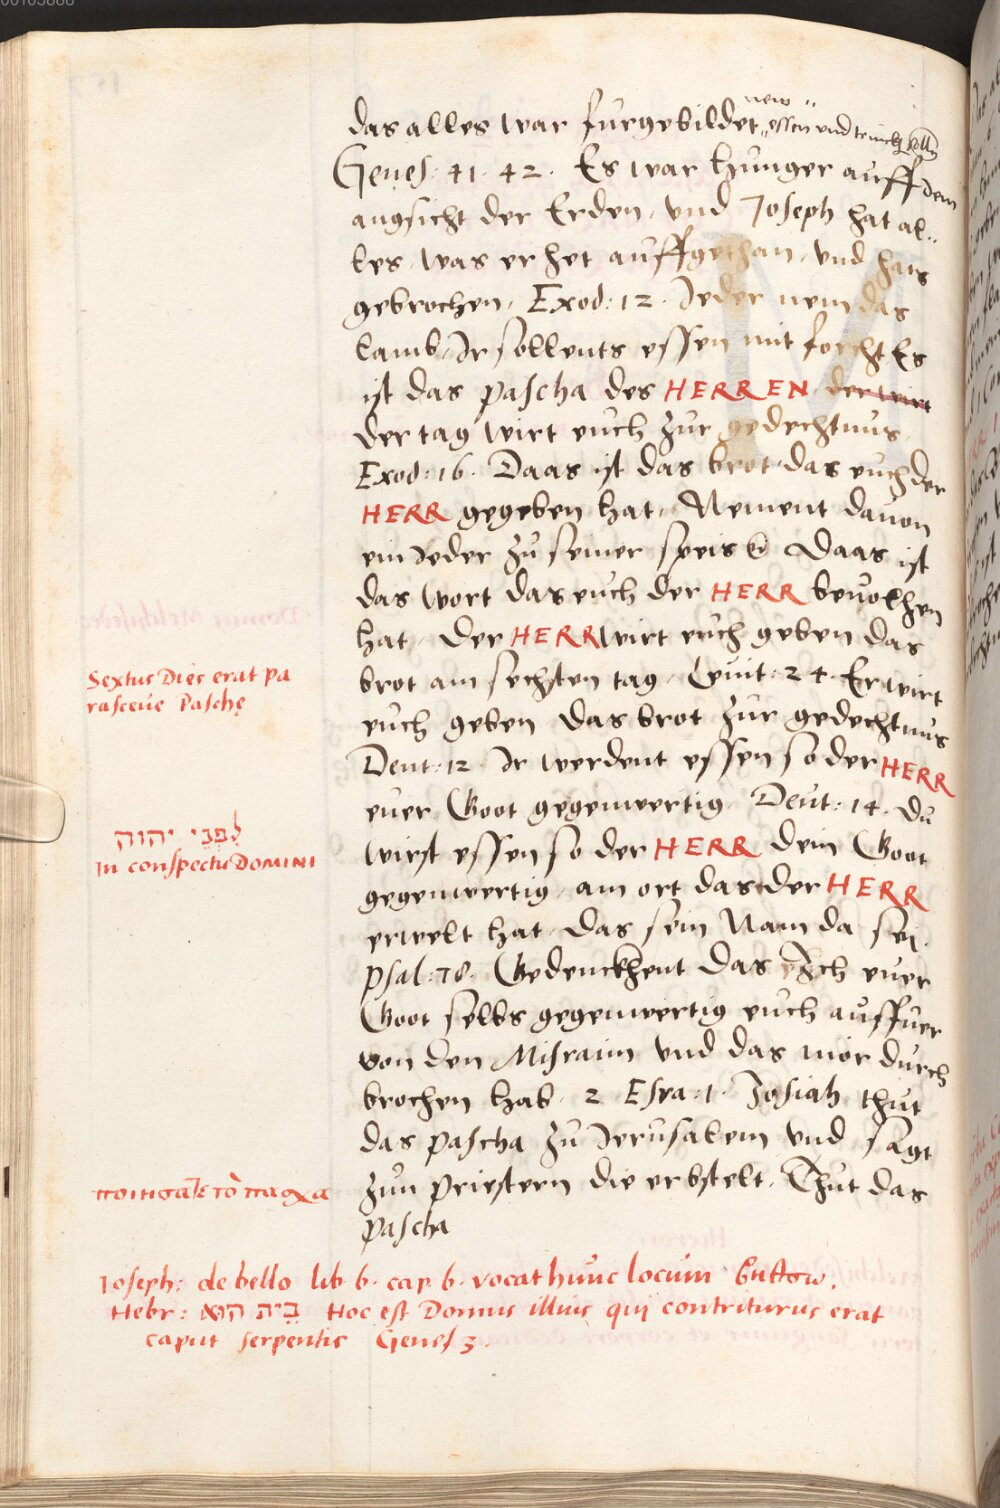 00103888
das alles war furgebildet new essen und trinckh sollen
Genes: 41. 42. Es war hunger auff dem
angsicht der Erden, und Joseph hat al-
les was er het auffgethan, und hats
gebrochen, Exod: 12. Jeder nem das
lamb, Jr sollents essen mit forcht Es
ist das pascha des HERREN der wirt
der tag wirt euch zur gedechtnus
Exod: 16. Daas ist das brot, das euch der
HERR gegeben hat, Nement davon
ein Jeder zu seiner speis Daas ist
das wort das euch der HERR bevolhen
hat, der HERR wirt euch geben das
brot am sechsten tag, Levit: 24. Er wirt
euch geben das brot zur gedechtnus
Deut: 12. Jr werdent essen so der HERR
euer Goot gegenwertig. Deut: 14. du
wirst essen so der HERR dein Goot
gegenwertig, am ort das der HERR
erwelt hat, das sein Nam da sej.
psal: 78. Gedenckhent das Jch euer
Goot selbs gegenwertig euch auffuer
von den Misraim und das mör durch
brochen hab. 2 Esra. 1. Josiah thut
das pascha zu Jerusalem und sagt
zun priestern die er bstelt, Thut das
pascha
Sextus Dies erat pa
rasceue Paschę
לִפְנֵי יהוה
in conspectu DOMINI
ποιησατε τὸ πασχα
Joseph: de bello lib. 6. cap. 6. vocat hunc locum
Hebr: בֵּית הוּא Hoc est Domus illius qui contriturus erat
caput serpentis Genes 3.